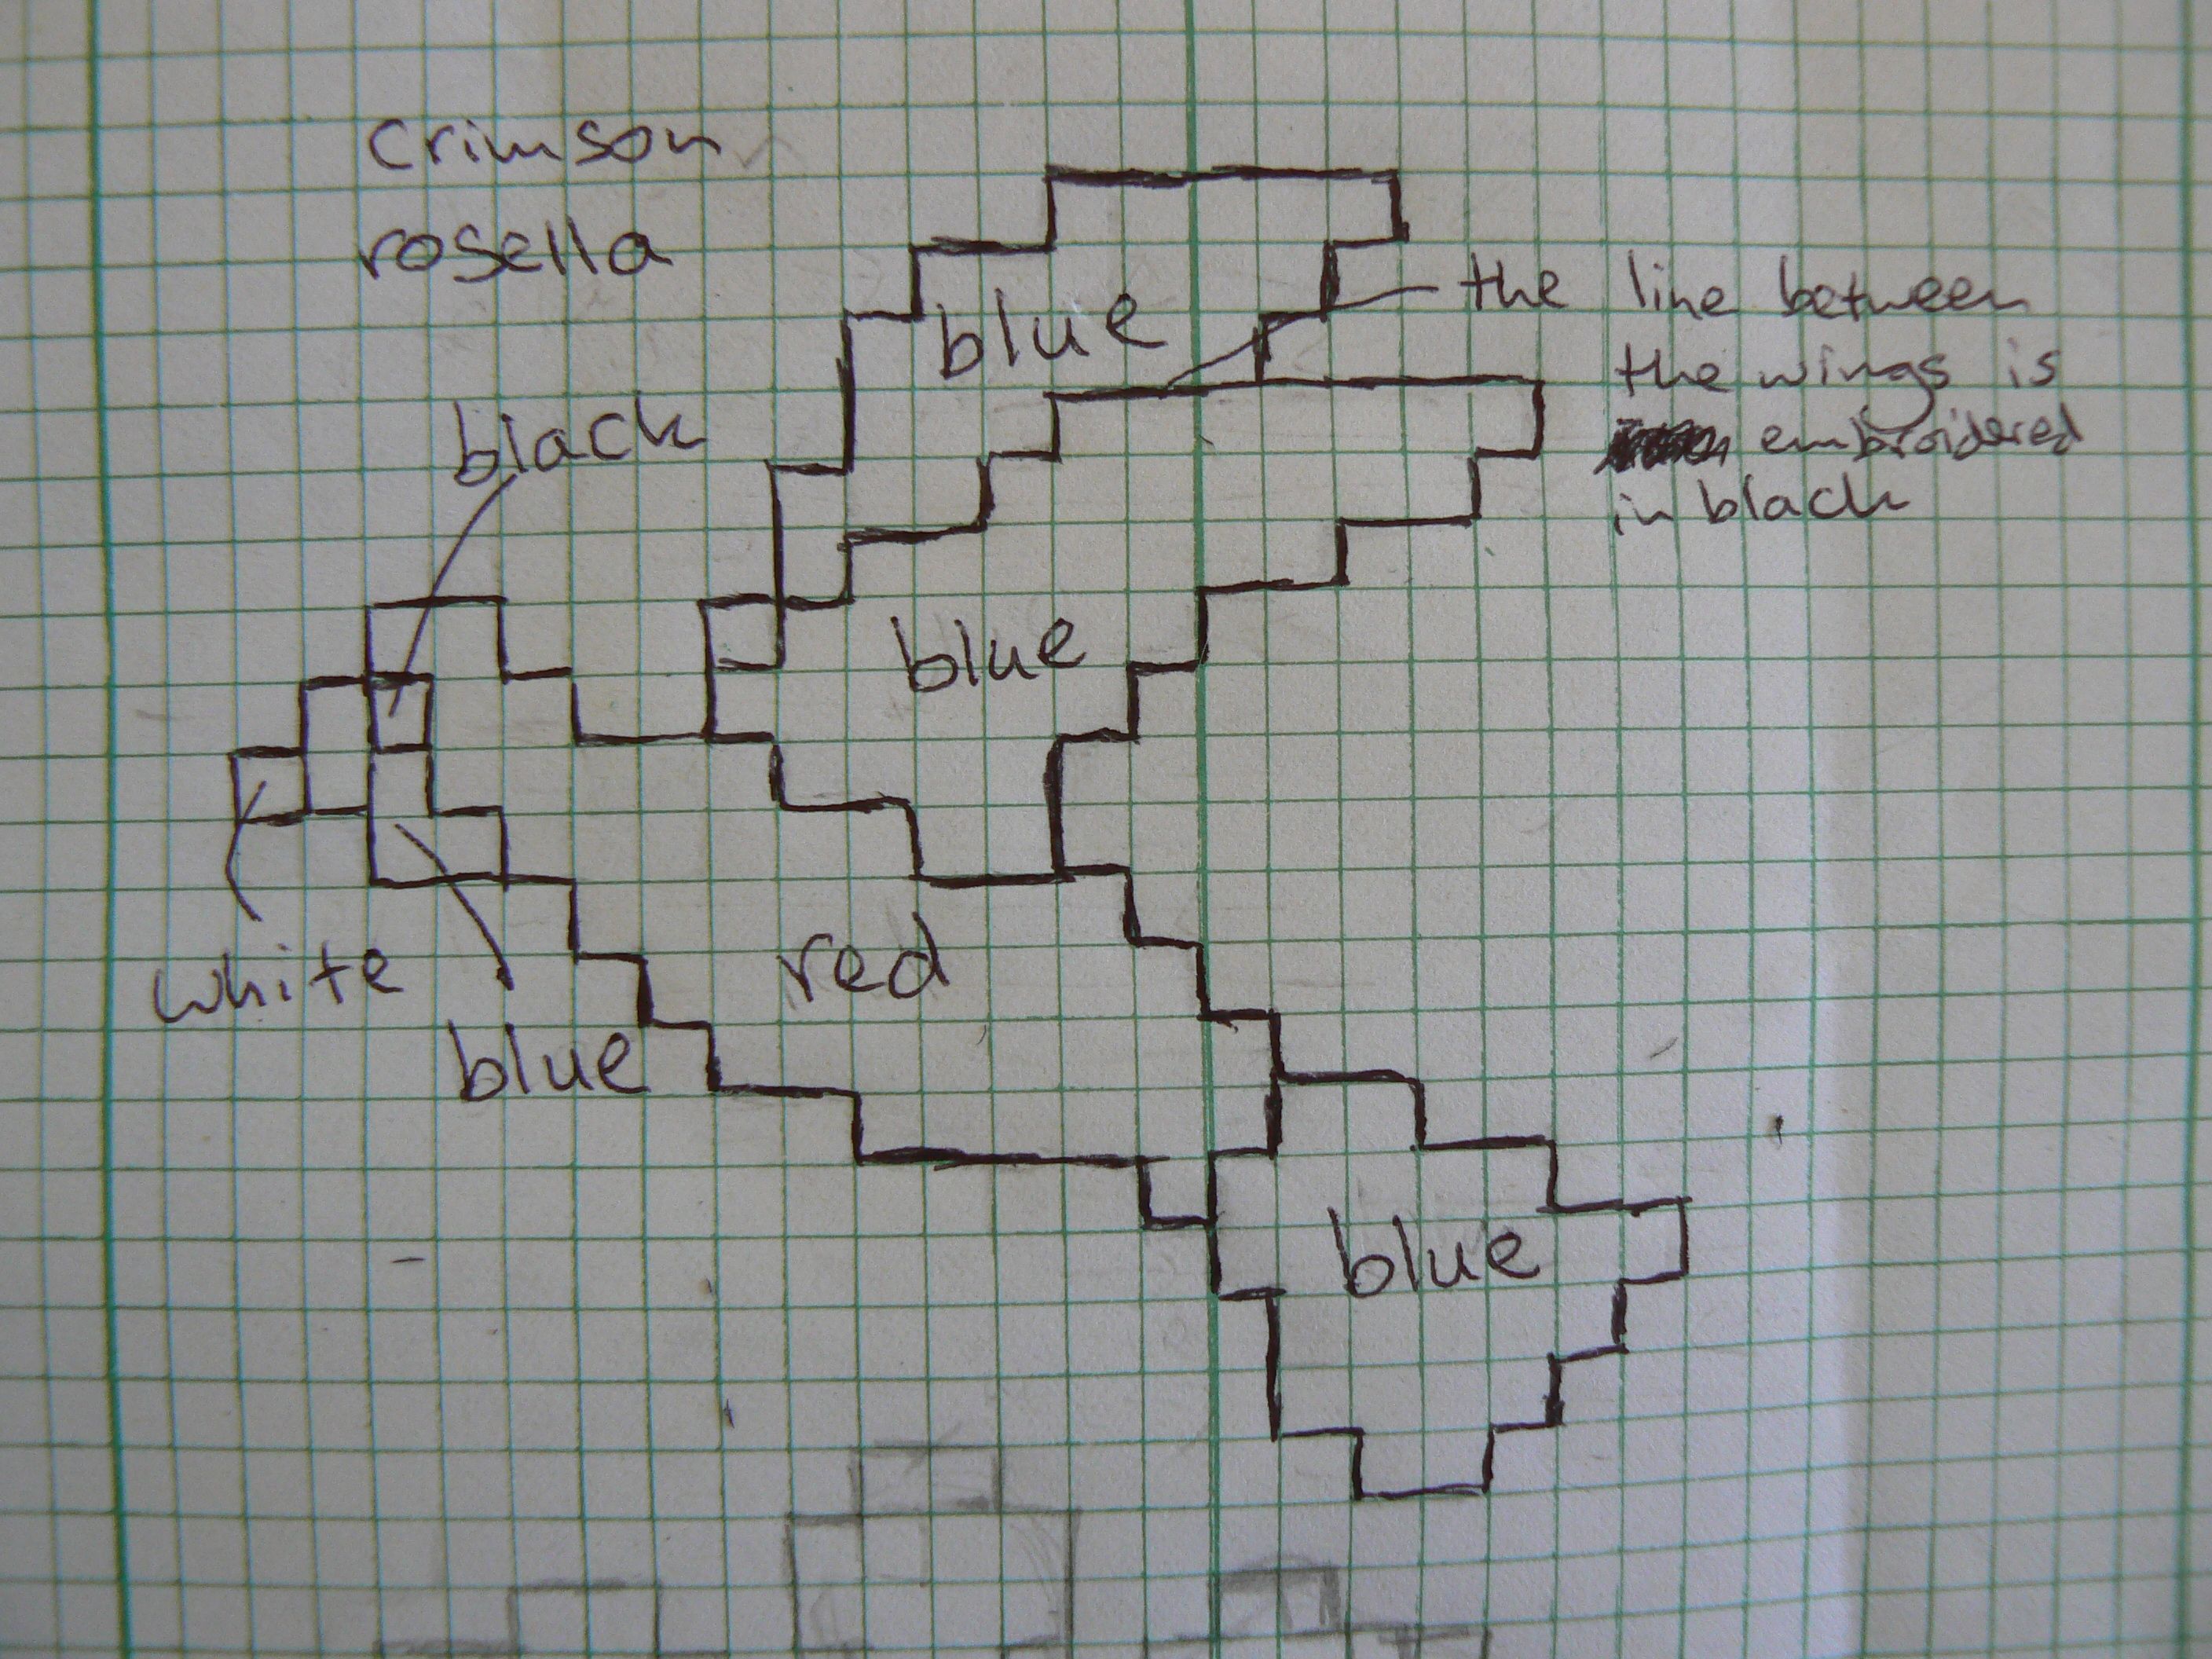 crimson
rosella
blue
the line between
the wings is
embroidered
in black
black
blue
red
white
blue
blue